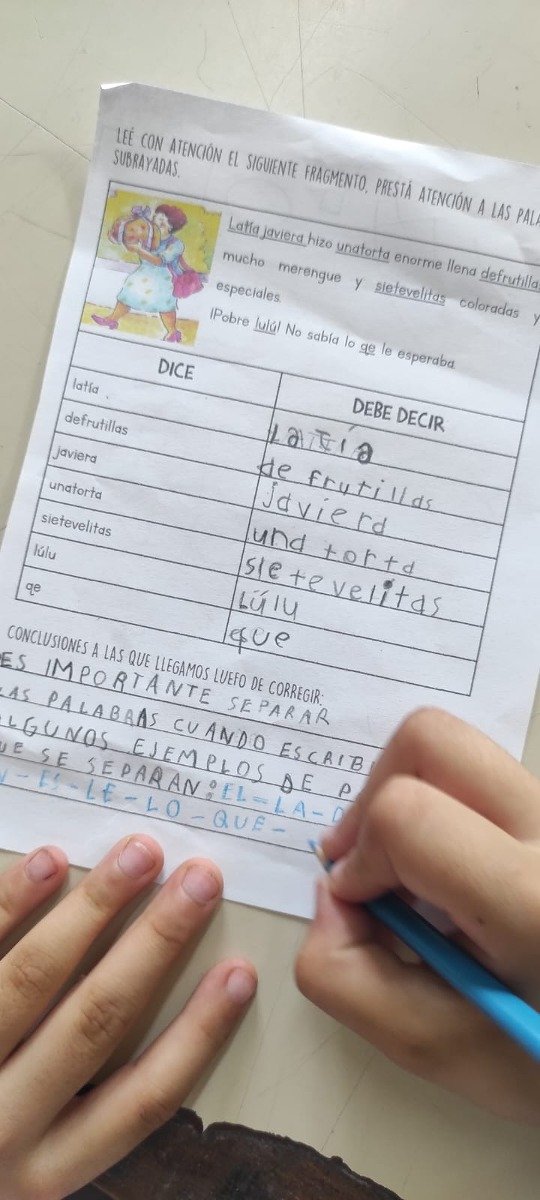 LEÉ CON ATENCIÓN EL SIGUIENTE FRAGMENTO, PRESTÁ ATENCIÓN A LAS
SUBRAYADAS.
Latía javiera hizo unatorta enorme llena defrutilla
mucho merengue y sietevelitas coloradas y
especiales.
¡Pobre lulú! No sabía lo qe le esperaba
DICE
DEBE DECIR
latía
La tía
defrutillas
de frutillas
javiera
javiera
unatorta
una torta
sietevelitas
siete velitas
lúlu
Lúlu
qe
que
CONCLUSIONES A LAS QUE LLEGAMOS LUEFO DE CORREGIR:
ES IMPORTANTE SEPARAR
LAS PALABRAS CUANDO ESCRIB
LGUNOS EJEMPLOS DE P
UE SE SEPARAN: EL-LA-D
N-ES-LE-LO-QUE-